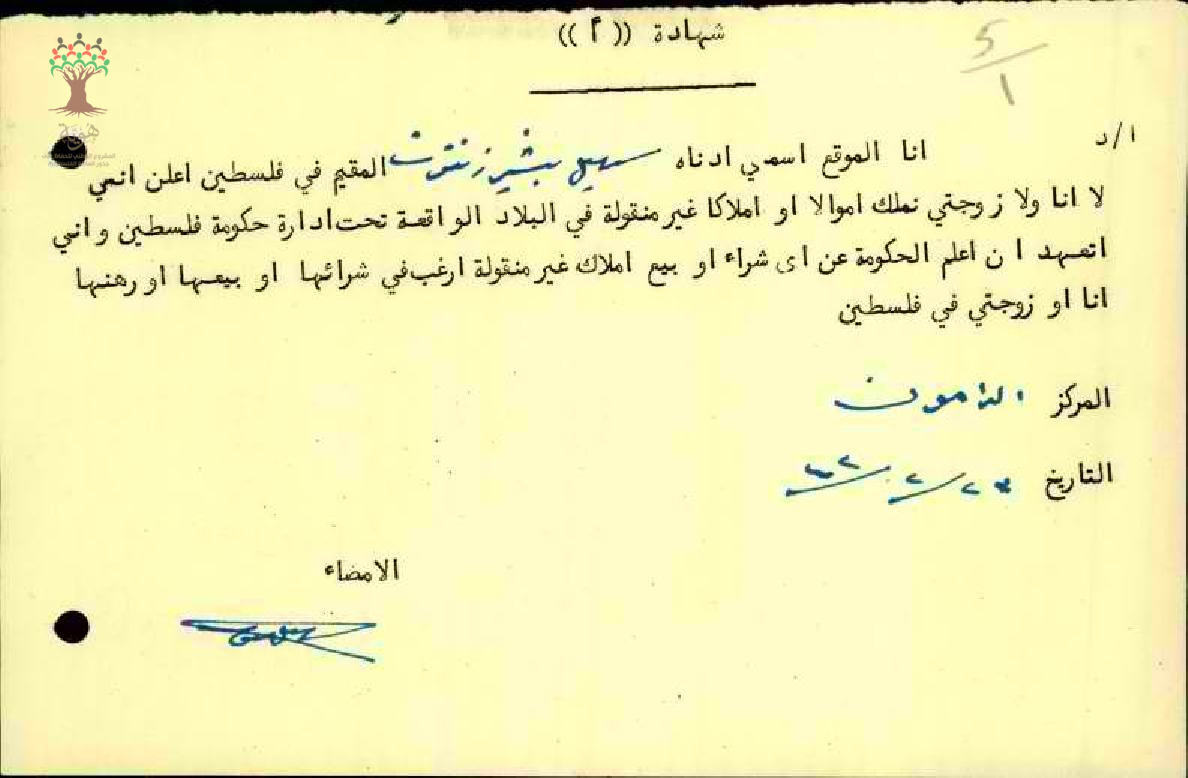 شهادة (( أ ))
5/1
ا/د
انا الموقع اسمي ادناه سهيل بشير زنتوت المقيم في فلسطين اعلن انني
لا انا ولا زوجتي نملك اموالا او املاكا غير منقولة في البلاد الواقعة تحت ادارة حكومة فلسطين واني
اتعهد ان اعلم الحكومة عن اى شراء او بيع املاك غير منقولة ارغب في شرائها او بيعها او رهنها
انا او زوجتي في فلسطين
المركز الدامون
التاريخ
الامضاء
هُوِيّة